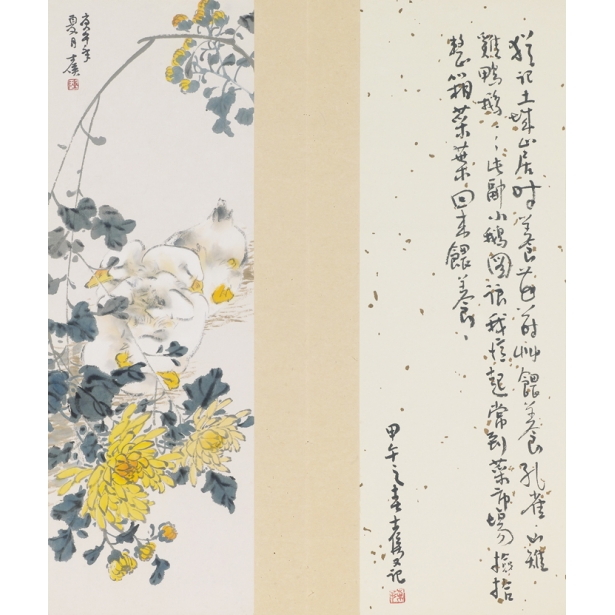 猶記土城山居時養艸餵養孔雀、山雞
雞鴨鵝、、此幀小鵝圖讓我憶起常到菜市場撿拾
整箱菜葉回來餵養、
甲午之春士侯又記
庚午年
夏月士侯